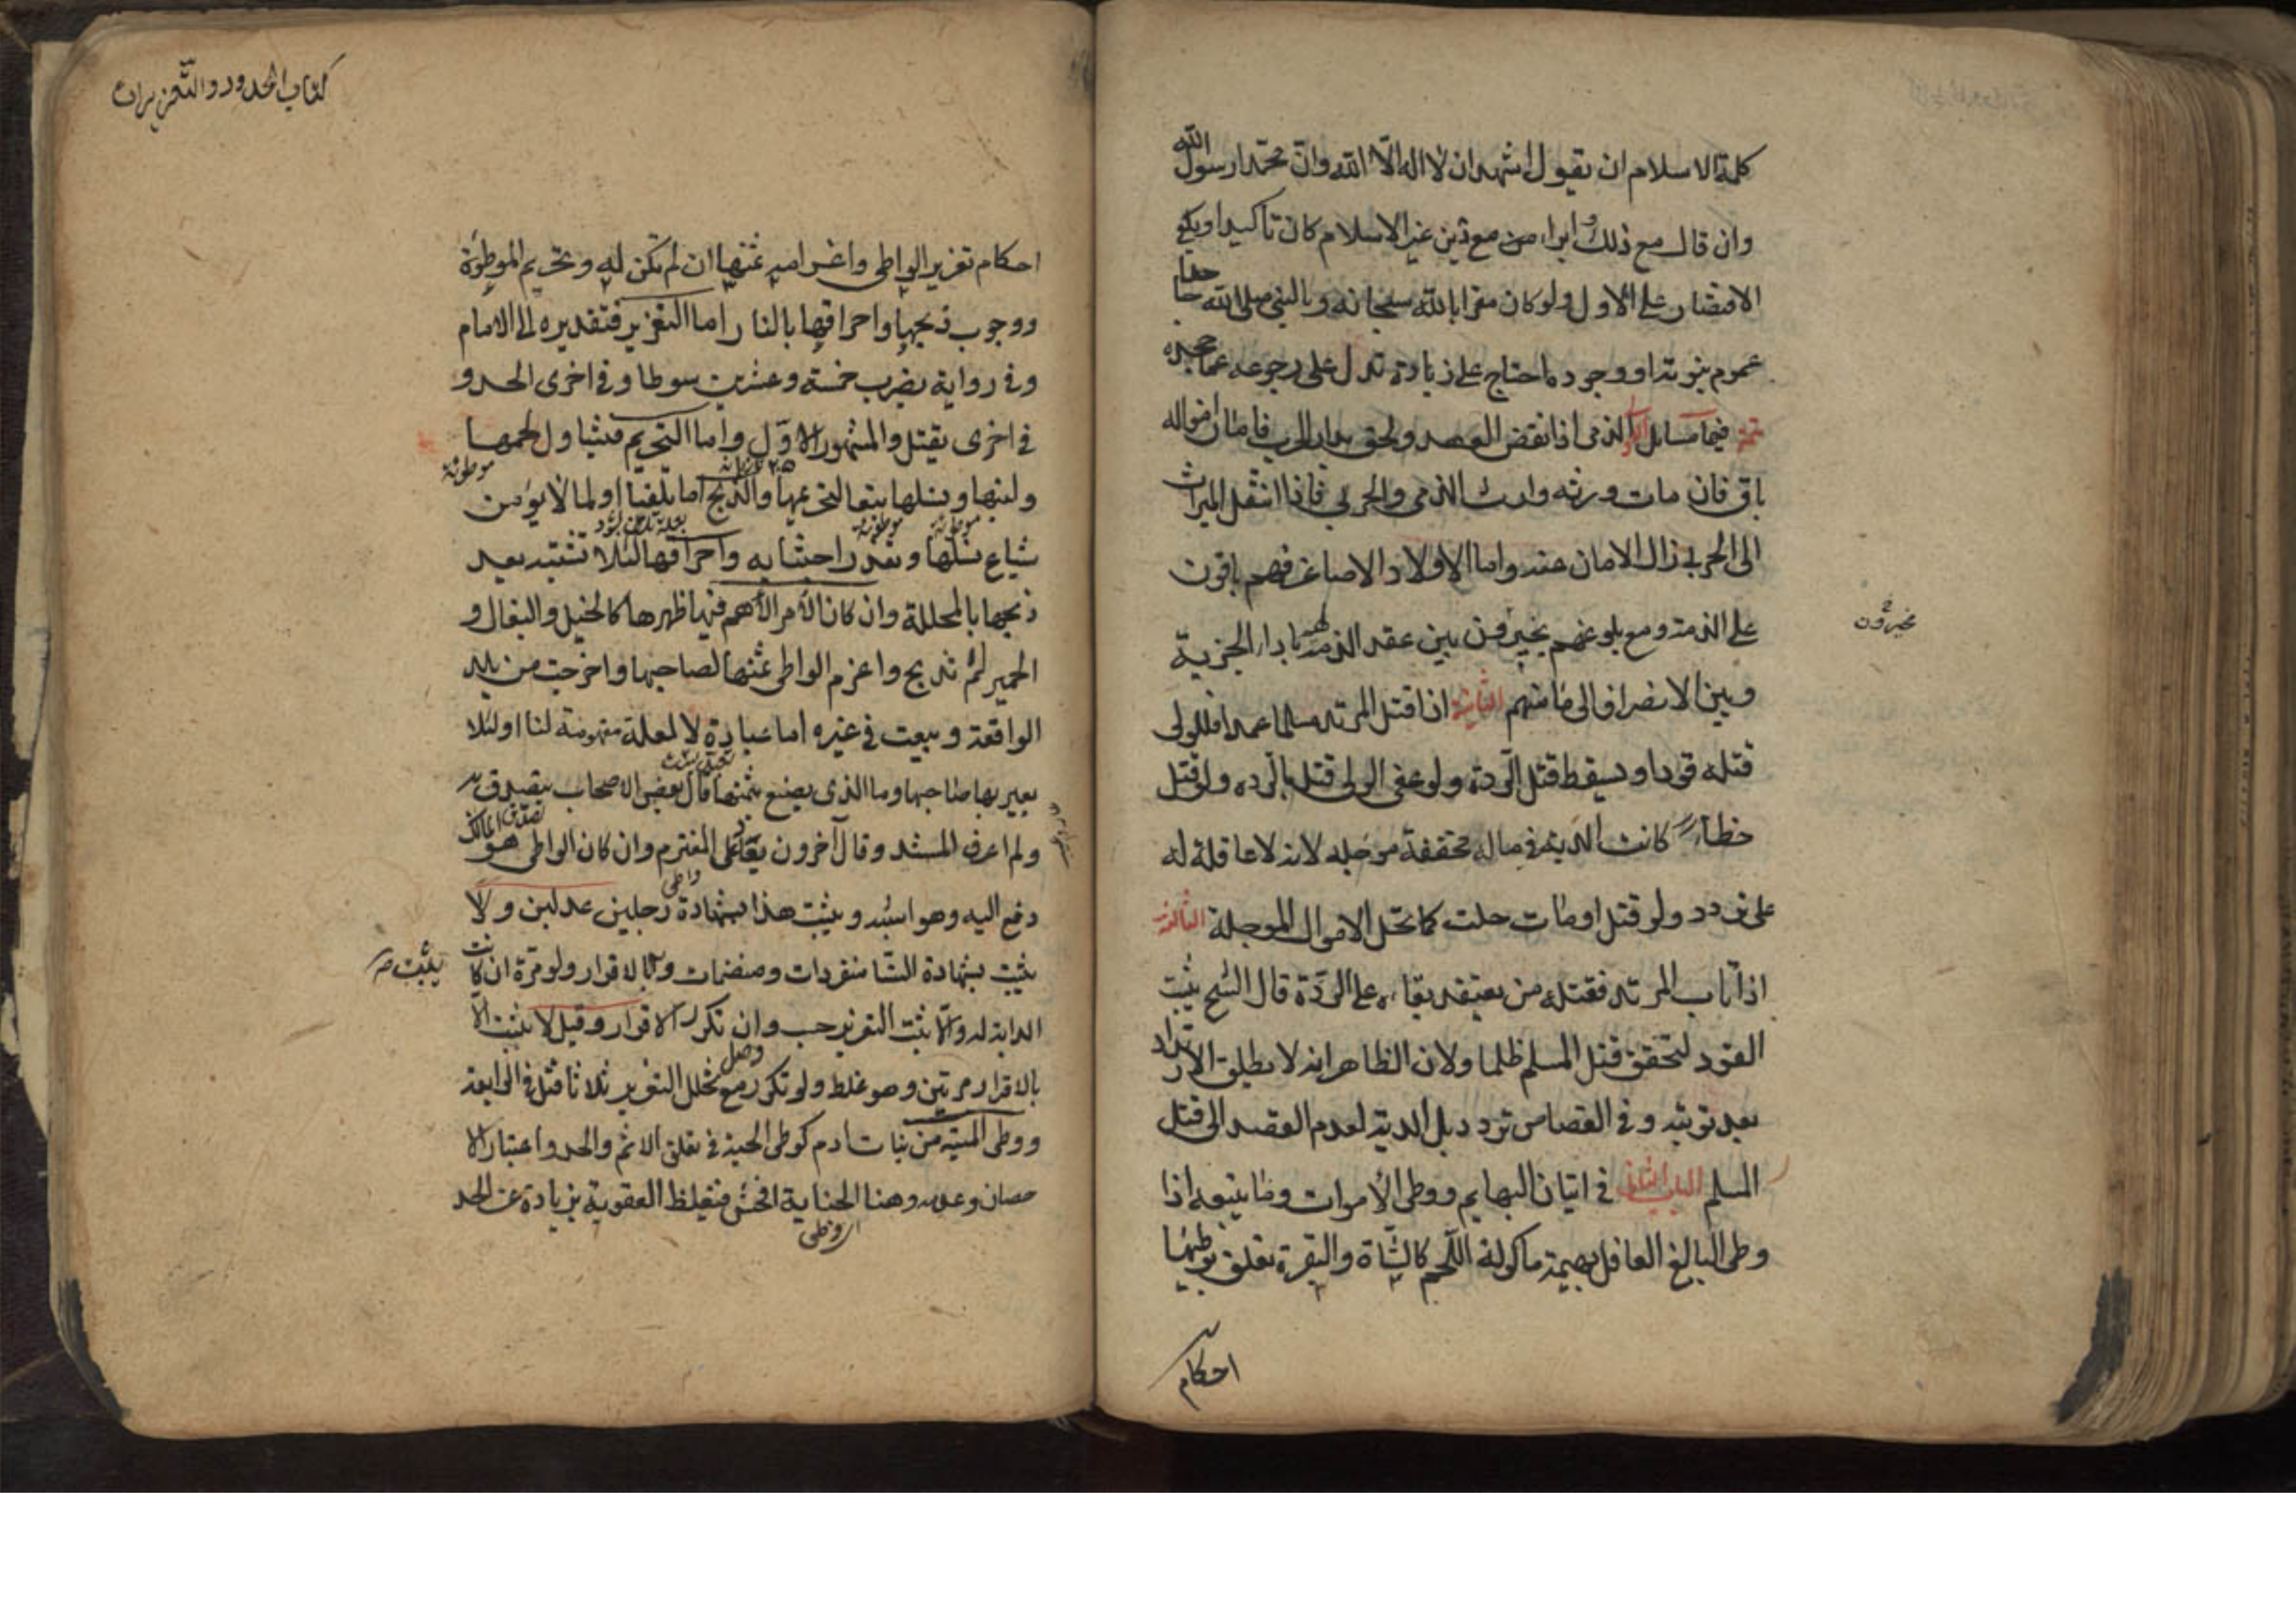 كلمة الاسلام ان يقول اشهد ان لا اله الا الله وان محمدا رسول الله
وان قال مع ذلك وابرا من مع دين غير الاسلام كان تاكيدا ويكفي
الاقتصار على الاول ولو كان مقرا بالله سبحانه وبالنبي صلى الله جاحدا
عموم نبوته او وجوده احتاج على زيادة تدل على رجوعه عما جحده
تتمة فيها مسايل الاولى الذمى اذا نقض العهد ولحق بدار الحرب فامان امواله
باق فان مات ورثه وارث الذمى والحربي فاذا انتقل الميراث
الى الحربي زال الامان عنه واما الاولاد الاصاغر فهم باقون
على الذمة ومع بلوغهم يخيرون بين عقد الذمة لهم باداء الجزية
مخيرون
وبين الانصراف الى مامنهم الثانية اذا قتل المرتد مسلما عمدا فللولى
قتله قودا ويسقط قتل الردة ولو عفى الولى قتل بالرده ولو قتل
خطأ كانت الدية فى ماله مخففة موجله لانه لا عاقلة له
على تردد ولو قتل او مات حلت كما تحل الاموال الموجلة الثالثة
اذا تاب المرتد فقتله من يعتقد بقاءه على الردة قال الشيخ يثبت
القود لتحقق قتل المسلم ظلما ولان الظاهر انه لا يطلق الارتداد
بعد توبته وفى القصاص تردد بل الدية لعدم القصد الى قتل
المسلم الباب الثانى فى اتيان البهايم ووطى الاموات وما يتبعه اذا
وطى البالغ العاقل بهيمة ماكولة اللحم كالشاة والبقرة تعلق بوطيها
احكام
كتاب الحدود والتعزيرات
احكام تعزير الواطى واغرامه ثمنها ان لم تكن له وتحريم الموطؤة
ووجوب ذبحها واحراقها بالنار اما التعزير فتقديره الى الامام
وفى رواية يضرب خمسة وعشرين سوطا وفى اخرى الحد و
فى اخرى يقتل والمشهور الاول واما التحريم فيتناول لحمها
موطوئة
ولبنها ونسلها تبعا لتحريمها والذبح اما تلقيا او لما لا يؤمن
موطوئة موطوئة
شياع نسلها وتعذر اجتنابه واحراقها لئلا تشتبه بعد
ذبحها بالمحللة وان كان الامر الاهم فيها ظهرها كالخيل والبغال و
الحمير لم تذبح واغرم الواطى ثمنها لصاحبها واخرجت من بلد
الواقعة وبيعت فى غيره اما عبادة لا لعلة مفهومة لنا او لئلا
يعير بها صاحبها وما الذى يصنع بثمنها قال بعض الاصحاب يتصدق به
ولم اعرف المستند وقال آخرون يعاد على المغترم وان كان الواطى هو المالك
واطى
دفع اليه وهو اشبه ويثبت هذا بشهادة رجلين عدلين ولا
يثبت بشهادة النسا منفردات ومنضمات وبالاقرار ولو مرة ان كانت
يثبت
الدابة له والا ثبت التعزير حسب وان تكرر الاقرار وقيل لا يثبت الا
بالاقرار مرتين وهو غلط ولو تكرر مع تخلل التعزير ثلاثا قتل فى الرابعة
ووطى الميتة من بنات ادم كوطى الحية فى تعلق الاثم والحد واعتبار الا
حصان وعدمه وهنا الجناية افحش فتغلظ العقوبة بزيادة عن الحد